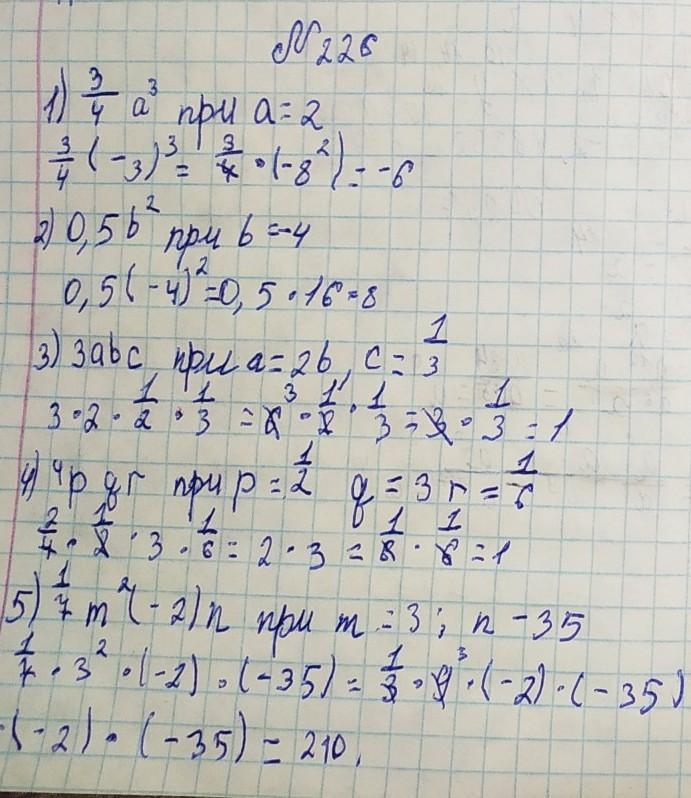 №226
1) 3/4 a³ при a=2
3/4 (-3)³ = 3/4 · (-8²) = -6
2) 0,5b² при b=-4
0,5(-4)²=0,5·16=8
3) 3abc, при a=2b, c=1/3
3·2·1/2·1/3 = 6³·1/2·1/3 = 3·1/3 = 1
4) 4pqr при p=1/2 q=3 r=1/6
2/4·1/2·3·1/6 = 2·3 = 1/6·1/6 = 1
5) 1/7 m²(-2)n при m=3; n-35
1/7·3²·(-2)·(-35) = 1/3·9³·(-2)·(-35)
·(-2)·(-35) = 210,